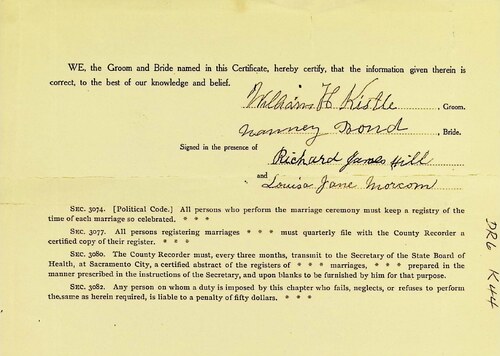 WE, the Groom and Bride named in this Certificate, hereby certify, that the information given therein is
correct, to the best of our knowledge and belief.
William H Kistle, Groom.
Nanney Bond, Bride.
Signed in the presence of
Richard James Hill
and
Louisa Jane Morcom
SEC. 3074. [Political Code.] All persons who perform the marriage ceremony must keep a registry of the
time of each marriage so celebrated. * * *
SEC. 3077. All persons registering marriages * * * must quarterly file with the County Recorder a
certified copy of their register. * * *
SEC. 3080. The County Recorder must, every three months, transmit to the Secretary of the State Board of
Health, at Sacramento City, a certified abstract of the registers of * * * marriages, * * * prepared in the
manner prescribed in the instructions of the Secretary, and upon blanks to be furnished by him for that purpose.
SEC. 3082. Any person on whom a duty is imposed by this chapter who fails, neglects, or refuses to perform
the same as herein required, is liable to a penalty of fifty dollars. * * *
DRG K44